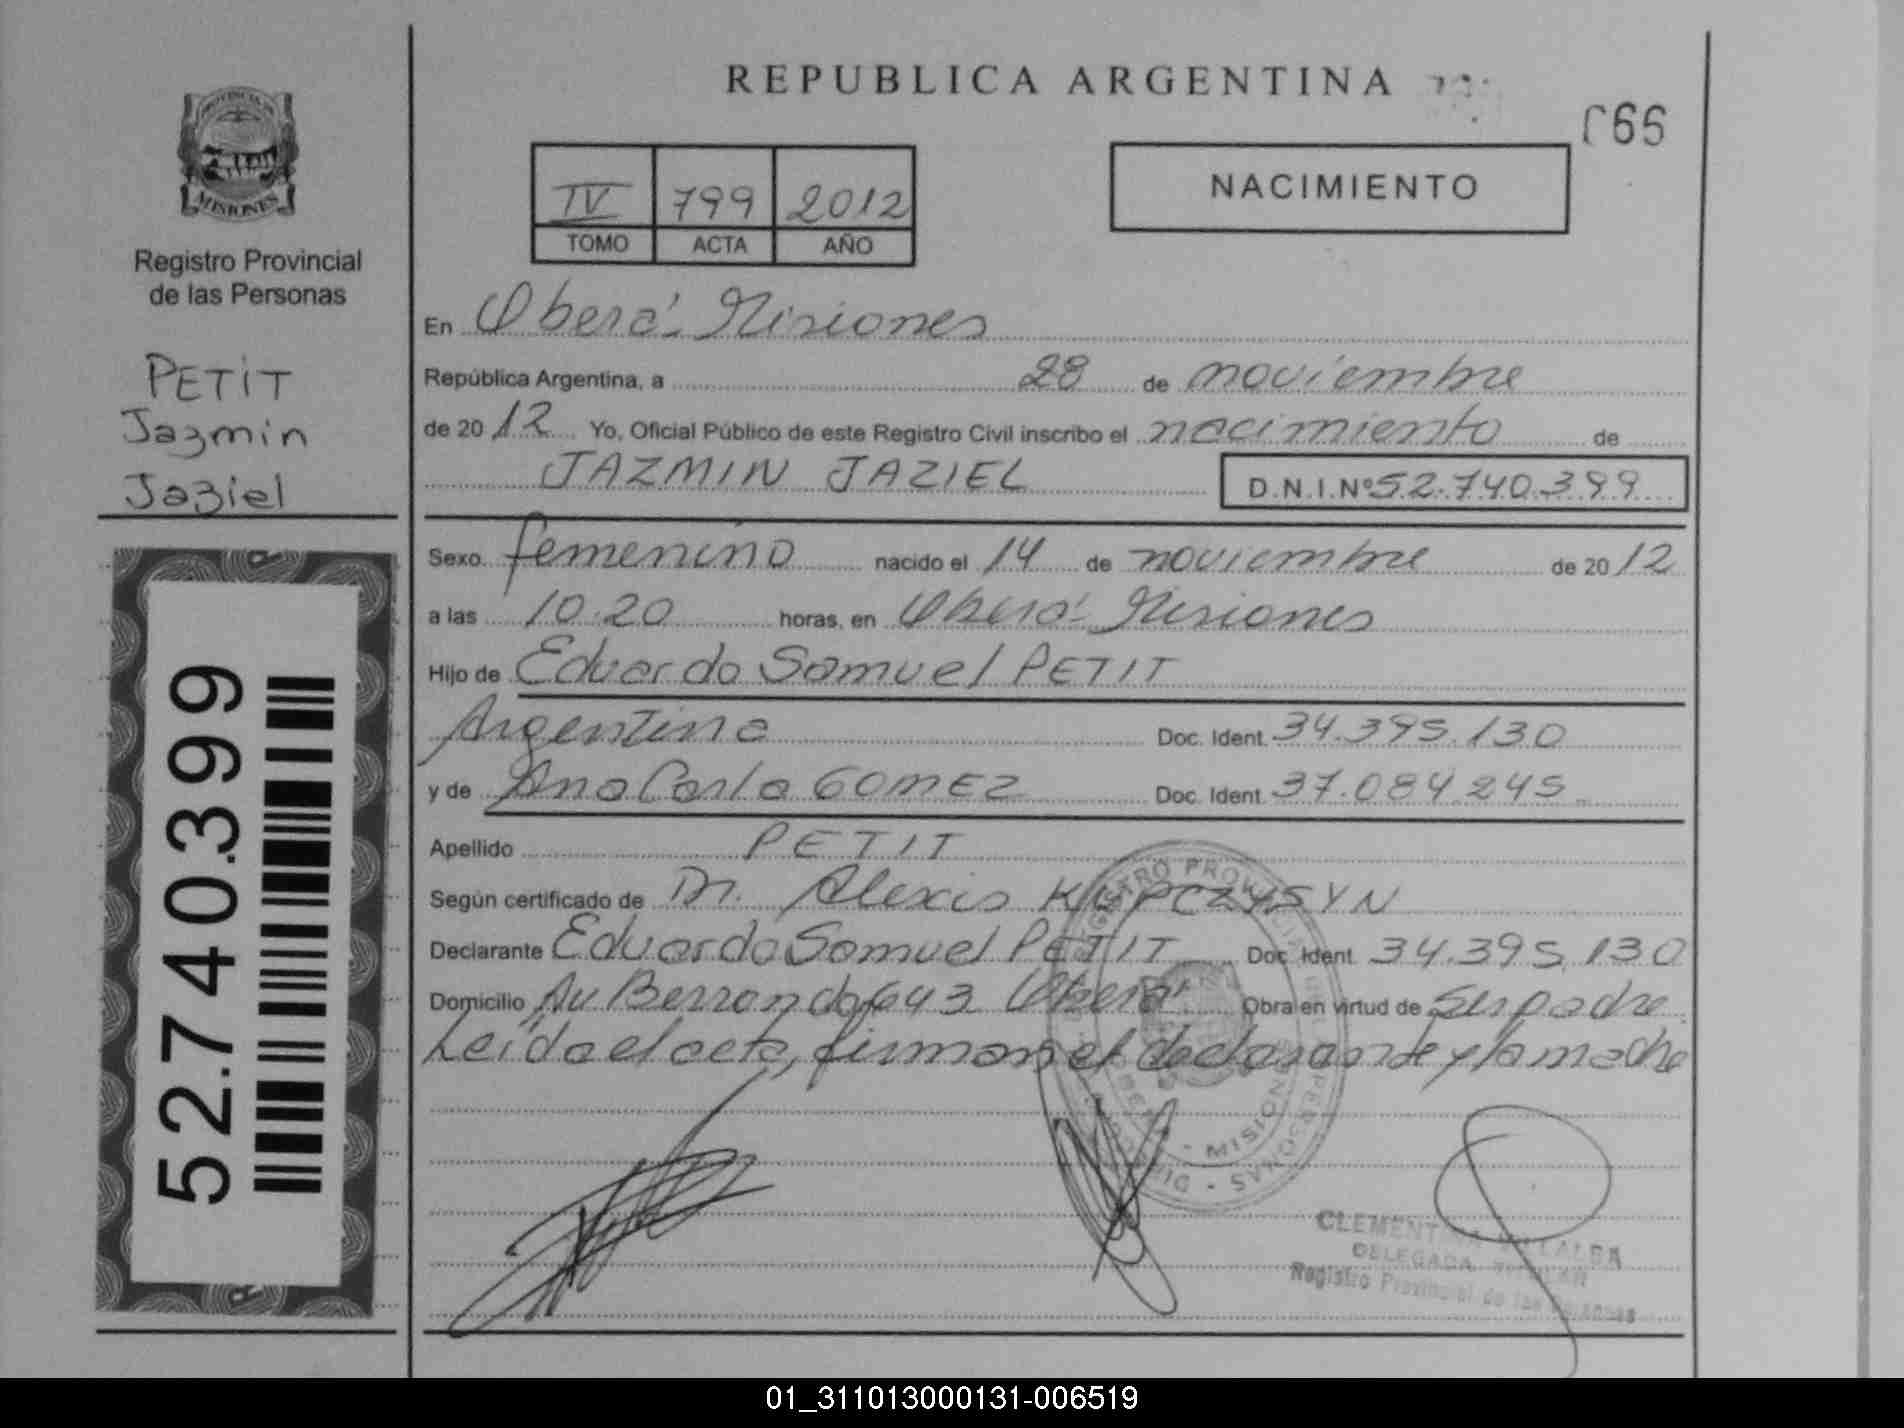 REPUBLICA ARGENTINA
066
PROVINCIA DE
MISIONES
Registro Provincial
de las Personas
PETIT
Jazmin
Jaziel
52.740.399
IV 799 2012
TOMO ACTA AÑO
NACIMIENTO
En Oberá - Misiones
República Argentina, a 28 de noviembre
de 2012 Yo, Oficial Público de este Registro Civil inscribo el nacimiento de
JAZMIN JAZIEL D.N.I.Nº 52.740.399
Sexo femenino nacido el 14 de noviembre de 2012
a las 10.20 horas, en Oberá - Misiones
Hijo de Eduardo Samuel PETIT
Argentina Doc. Ident. 34.395.130
y de Ana Carla GOMEZ Doc. Ident. 37.084.245
Apellido PETIT
Según certificado de Dr. Alexis
Declarante Eduardo Samuel PETIT Doc. Ident. 34.395.130
Domicilio Av Berrondo 643 Oberá Obra en virtud de Ser padre
Leída el acta, firman el declarante y la madre
CLEMENTINA VILLALBA
DELEGADA TITULAR
Registro Provincial de las Personas
01_311013000131-006519